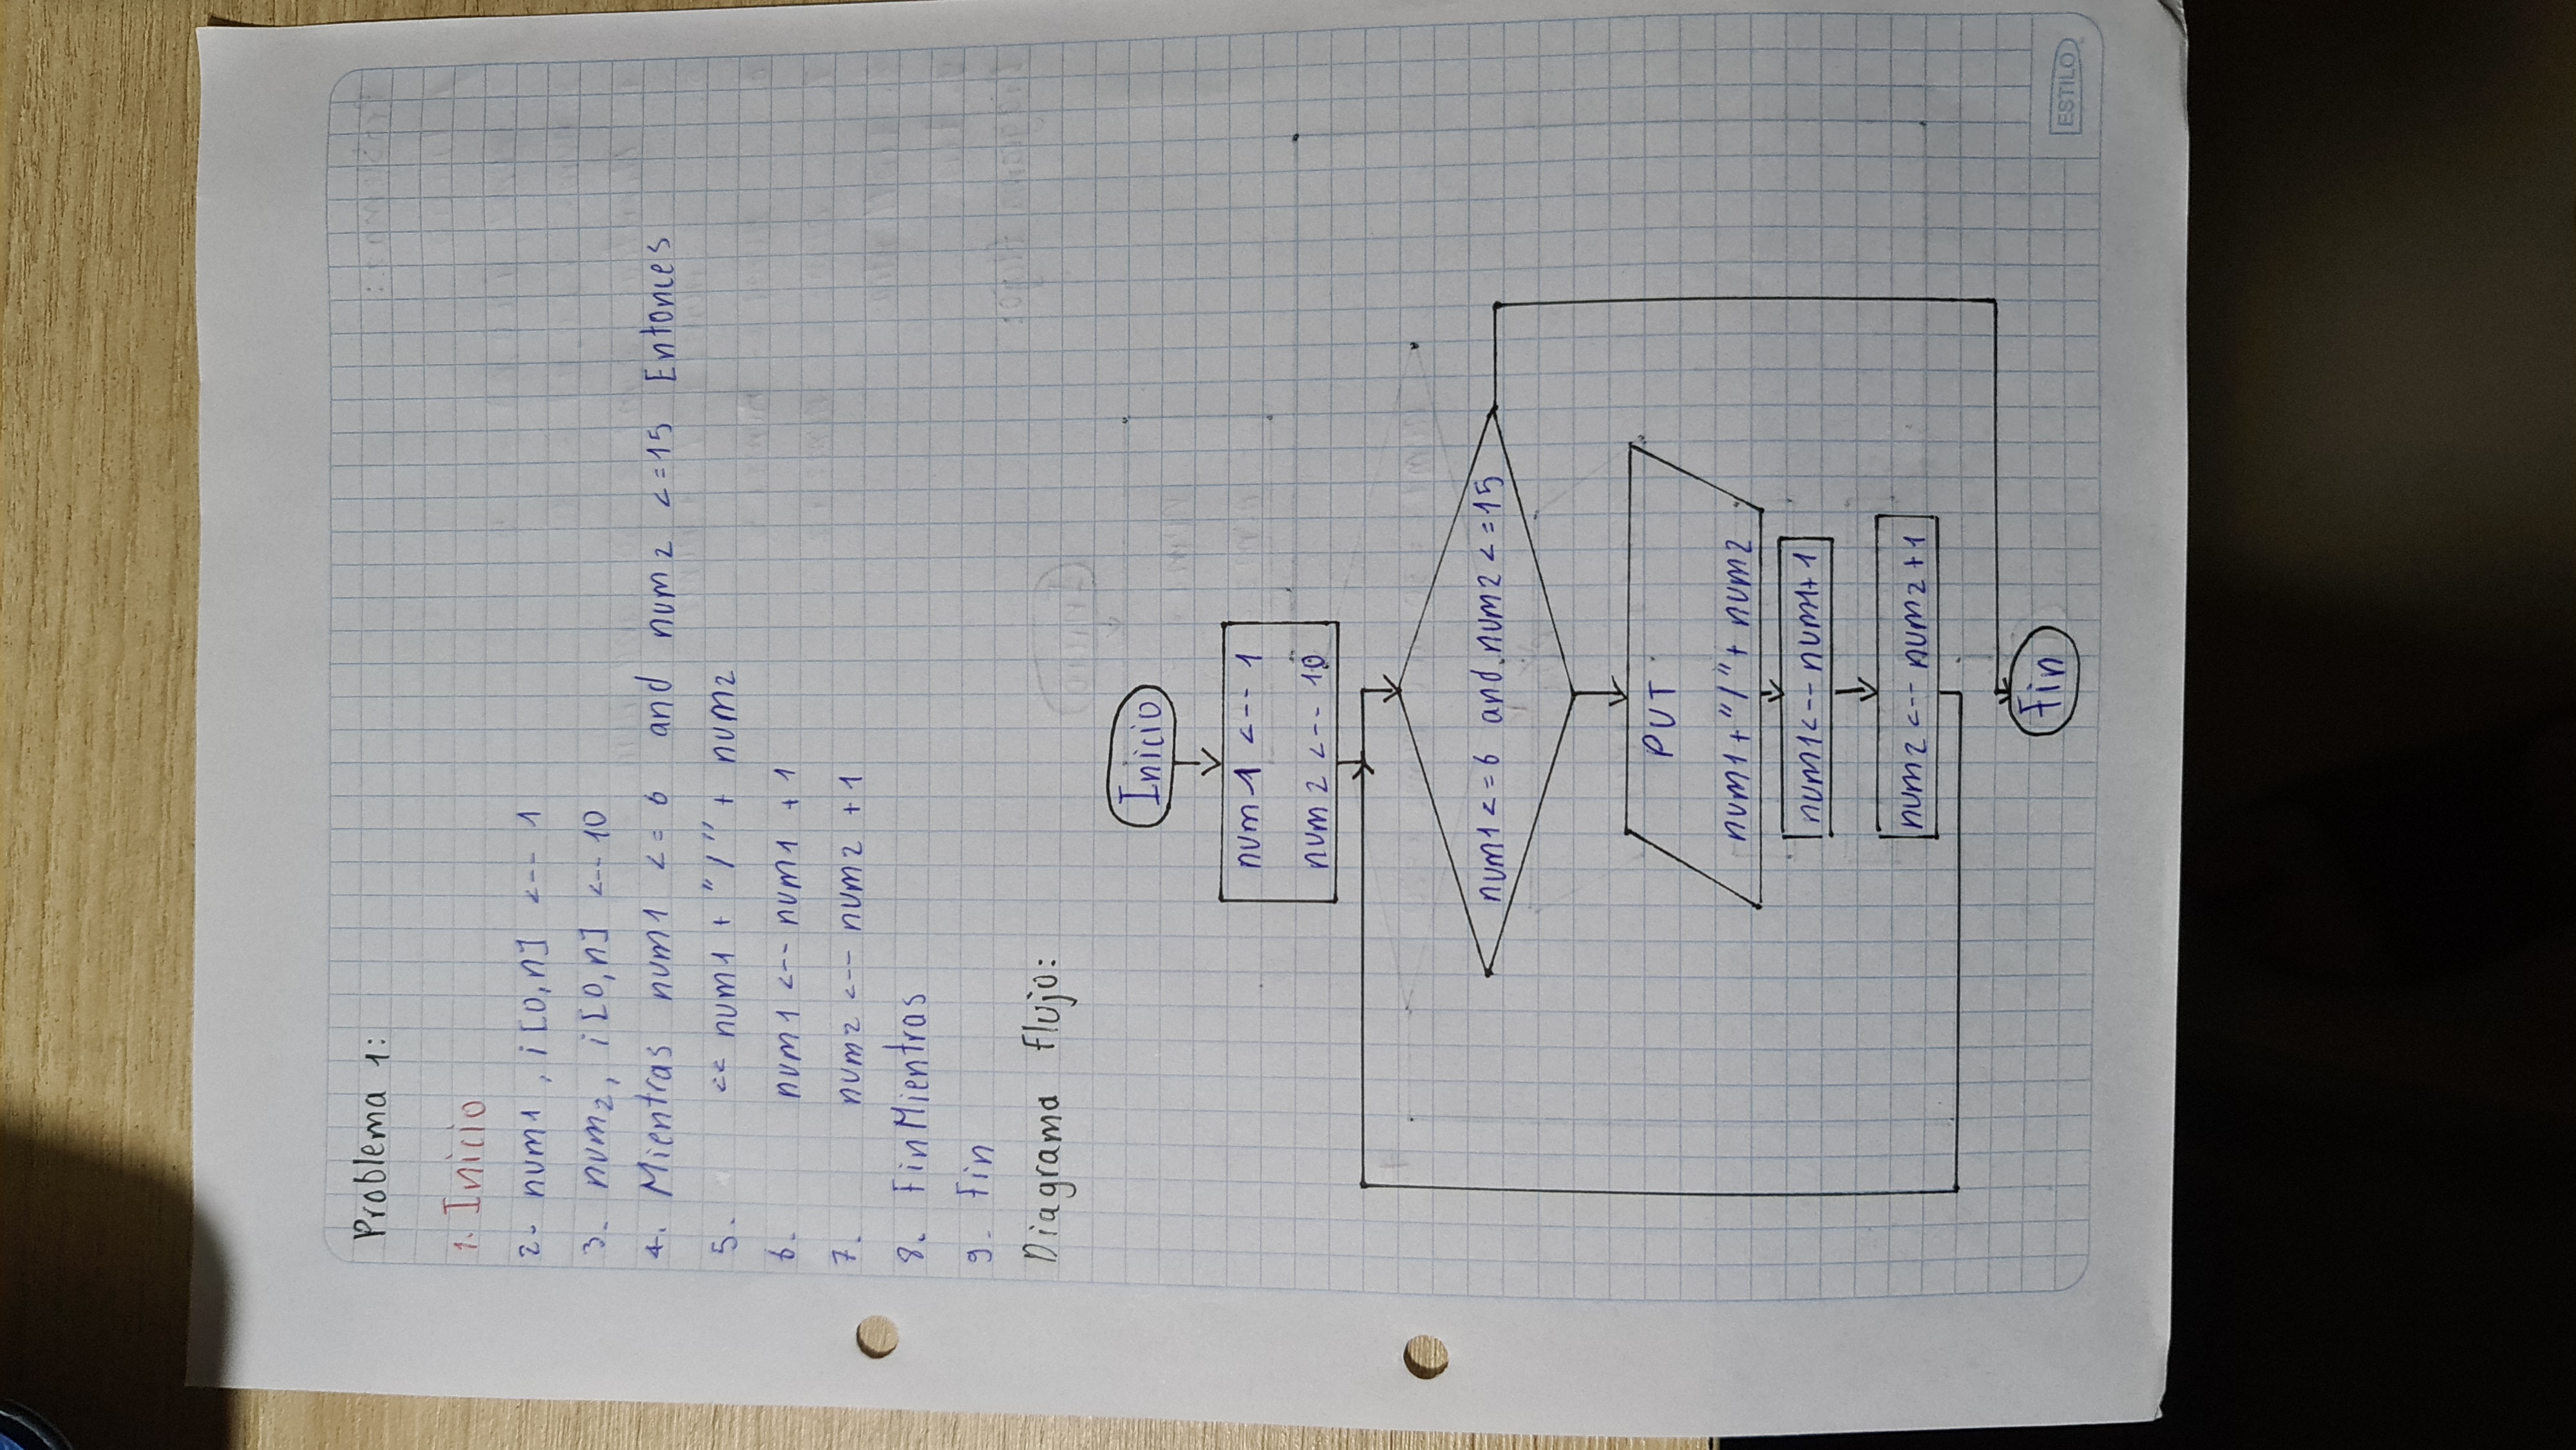 Problema 1:
1. Inicio
2- num1, i[0,n] <-- 1
3- num2, i[0,n] <-- 10
4. Mientras num1 <= 6 and num2 <=15 Entonces
5. << num1 + "/" + num2
6. num1 <-- num1 + 1
7. num2 <-- num2 + 1
8. FinMientras
9- Fin
Diagrama flujo:
Inicio
num1 <-- 1
num2 <-- 10
num1<=6 and num2<=15
PUT
num1+"/"+ num2
num1<-- num1+1
num2 <-- num2+1
Fin
ESTILO